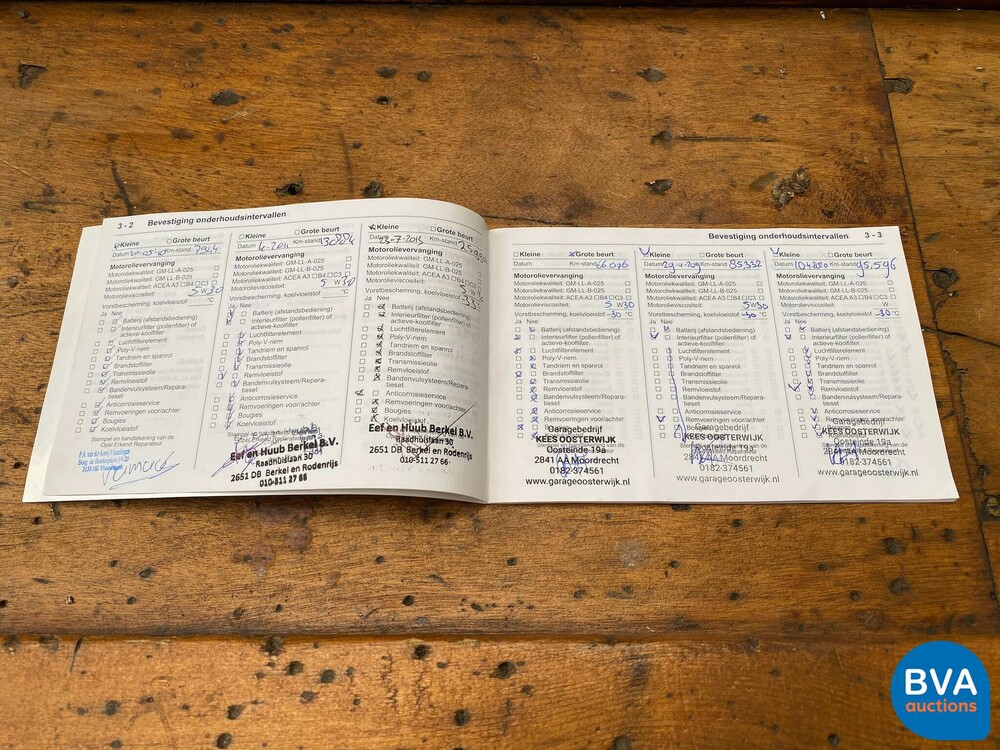 3 - 2 Bevestiging onderhoudsintervallen
Kleine Grote beurt
Datum Km-stand
Motorolievervanging
Motoroliekwaliteit: GM-LL-A-025
Motoroliekwaliteit: GM-LL-B-025
Motoroliekwaliteit: ACEA A3 B4 C3
Motorolieviscositeit: 5 W30
Vorstbescherming, koelvloeistof °C
Ja Nee
Batterij (afstandsbediening)
Interieurfilter (pollenfilter) of
actieve-koolfilter
Luchtfilterelement
Poly-V-riem
Tandriem en spanrol
Brandstoffilter
Transmissieolie
Remvloeistof
Bandenvulsysteem/Repara-
tieset
Anticorrosieservice
Remvoeringen voor/achter
Bougies
Koelvloeistof
Stempel en handtekening van de
Opel Erkend Reparateur
Kleine Grote beurt
Datum 4-2011 Km-stand
Motorolievervanging
Motoroliekwaliteit: GM-LL-A-025
Motoroliekwaliteit: GM-LL-B-025
Motoroliekwaliteit: ACEA A3 B4 C3
Motorolieviscositeit: 5 W30
Vorstbescherming, koelvloeistof °C
Ja Nee
Batterij (afstandsbediening)
Interieurfilter (pollenfilter) of
actieve-koolfilter
Luchtfilterelement
Poly-V-riem
Tandriem en spanrol
Brandstoffilter
Transmissieolie
Remvloeistof
Bandenvulsysteem/Repara-
tieset
Anticorrosieservice
Remvoeringen voor/achter
Bougies
Koelvloeistof
Eef en Huub Berkel B.V.
Raadhuislaan 30
2651 DB Berkel en Rodenrijs
010-511 27 66
Kleine Grote beurt
Datum 23-7-2013 Km-stand
Motorolievervanging
Motoroliekwaliteit: GM-LL-A-025
Motoroliekwaliteit: GM-LL-B-025
Motoroliekwaliteit: ACEA A3 B4 C3
Motorolieviscositeit:
Vorstbescherming, koelvloeistof
Ja Nee
Batterij (afstandsbediening)
Interieurfilter (pollenfilter) of
actieve-koolfilter
Luchtfilterelement
Poly-V-riem
Tandriem en spanrol
Brandstoffilter
Transmissieolie
Remvloeistof
Bandenvulsysteem/Repara-
tieset
Anticorrosieservice
Remvoeringen voor/achter
Bougies
Koelvloeistof
Eef en Huub Berkel B.V.
Raadhuislaan 30
2651 DB Berkel en Rodenrijs
010-511 27 66
Bevestiging onderhoudsintervallen 3 - 3
Kleine Grote beurt
Datum Km-stand 66096
Motorolievervanging
Motoroliekwaliteit: GM-LL-A-025
Motoroliekwaliteit: GM-LL-B-025
Motoroliekwaliteit: ACEA A3 B4 C3
Motorolieviscositeit: 5 W30
Vorstbescherming, koelvloeistof -30 °C
Ja Nee
Batterij (afstandsbediening)
Interieurfilter (pollenfilter) of
actieve-koolfilter
Luchtfilterelement
Poly-V-riem
Tandriem en spanrol
Brandstoffilter
Transmissieolie
Remvloeistof
Bandenvulsysteem/Repara-
tieset
Anticorrosieservice
Remvoeringen voor/achter
Bougies
Koelvloeistof
Garagebedrijf
KEES OOSTERWIJK
Oosteinde 19a
2841 AA Moordrecht
0182-374561
www.garageoosterwijk.nl
Kleine Grote beurt
Datum Km-stand 85352
Motorolievervanging
Motoroliekwaliteit: GM-LL-A-025
Motoroliekwaliteit: GM-LL-B-025
Motoroliekwaliteit: ACEA A3 B4 C3
Motorolieviscositeit: 5W30
Vorstbescherming, koelvloeistof -30 °C
Ja Nee
Batterij (afstandsbediening)
Interieurfilter (pollenfilter) of
actieve-koolfilter
Luchtfilterelement
Poly-V-riem
Tandriem en spanrol
Brandstoffilter
Transmissieolie
Remvloeistof
Bandenvulsysteem/Repara-
tieset
Anticorrosieservice
Remvoeringen voor/achter
Garagebedrijf
KEES OOSTERWIJK
Oosteinde 19a
2841 AA Moordrecht
0182-374561
www.garageoosterwijk.nl
Kleine Grote beurt
Datum Km-stand 95.596
Motorolievervanging
Motoroliekwaliteit: GM-LL-A-025
Motoroliekwaliteit: GM-LL-B-025
Motoroliekwaliteit: ACEA A3 B4 C3
Motorolieviscositeit: W
Vorstbescherming, koelvloeistof -30 °C
Ja Nee
Batterij (afstandsbediening)
Interieurfilter (pollenfilter) of
actieve-koolfilter
Luchtfilterelement
Poly-V-riem
Tandriem en spanrol
Brandstoffilter
Transmissieolie
Remvloeistof
Bandenvulsysteem/Repara-
tieset
Anticorrosieservice
Remvoeringen voor/achter
Garagebedrijf
KEES OOSTERWIJK
Oosteinde 19a
2841 AA Moordrecht
0182-374561
www.garageoosterwijk.nl
BVA
auctions